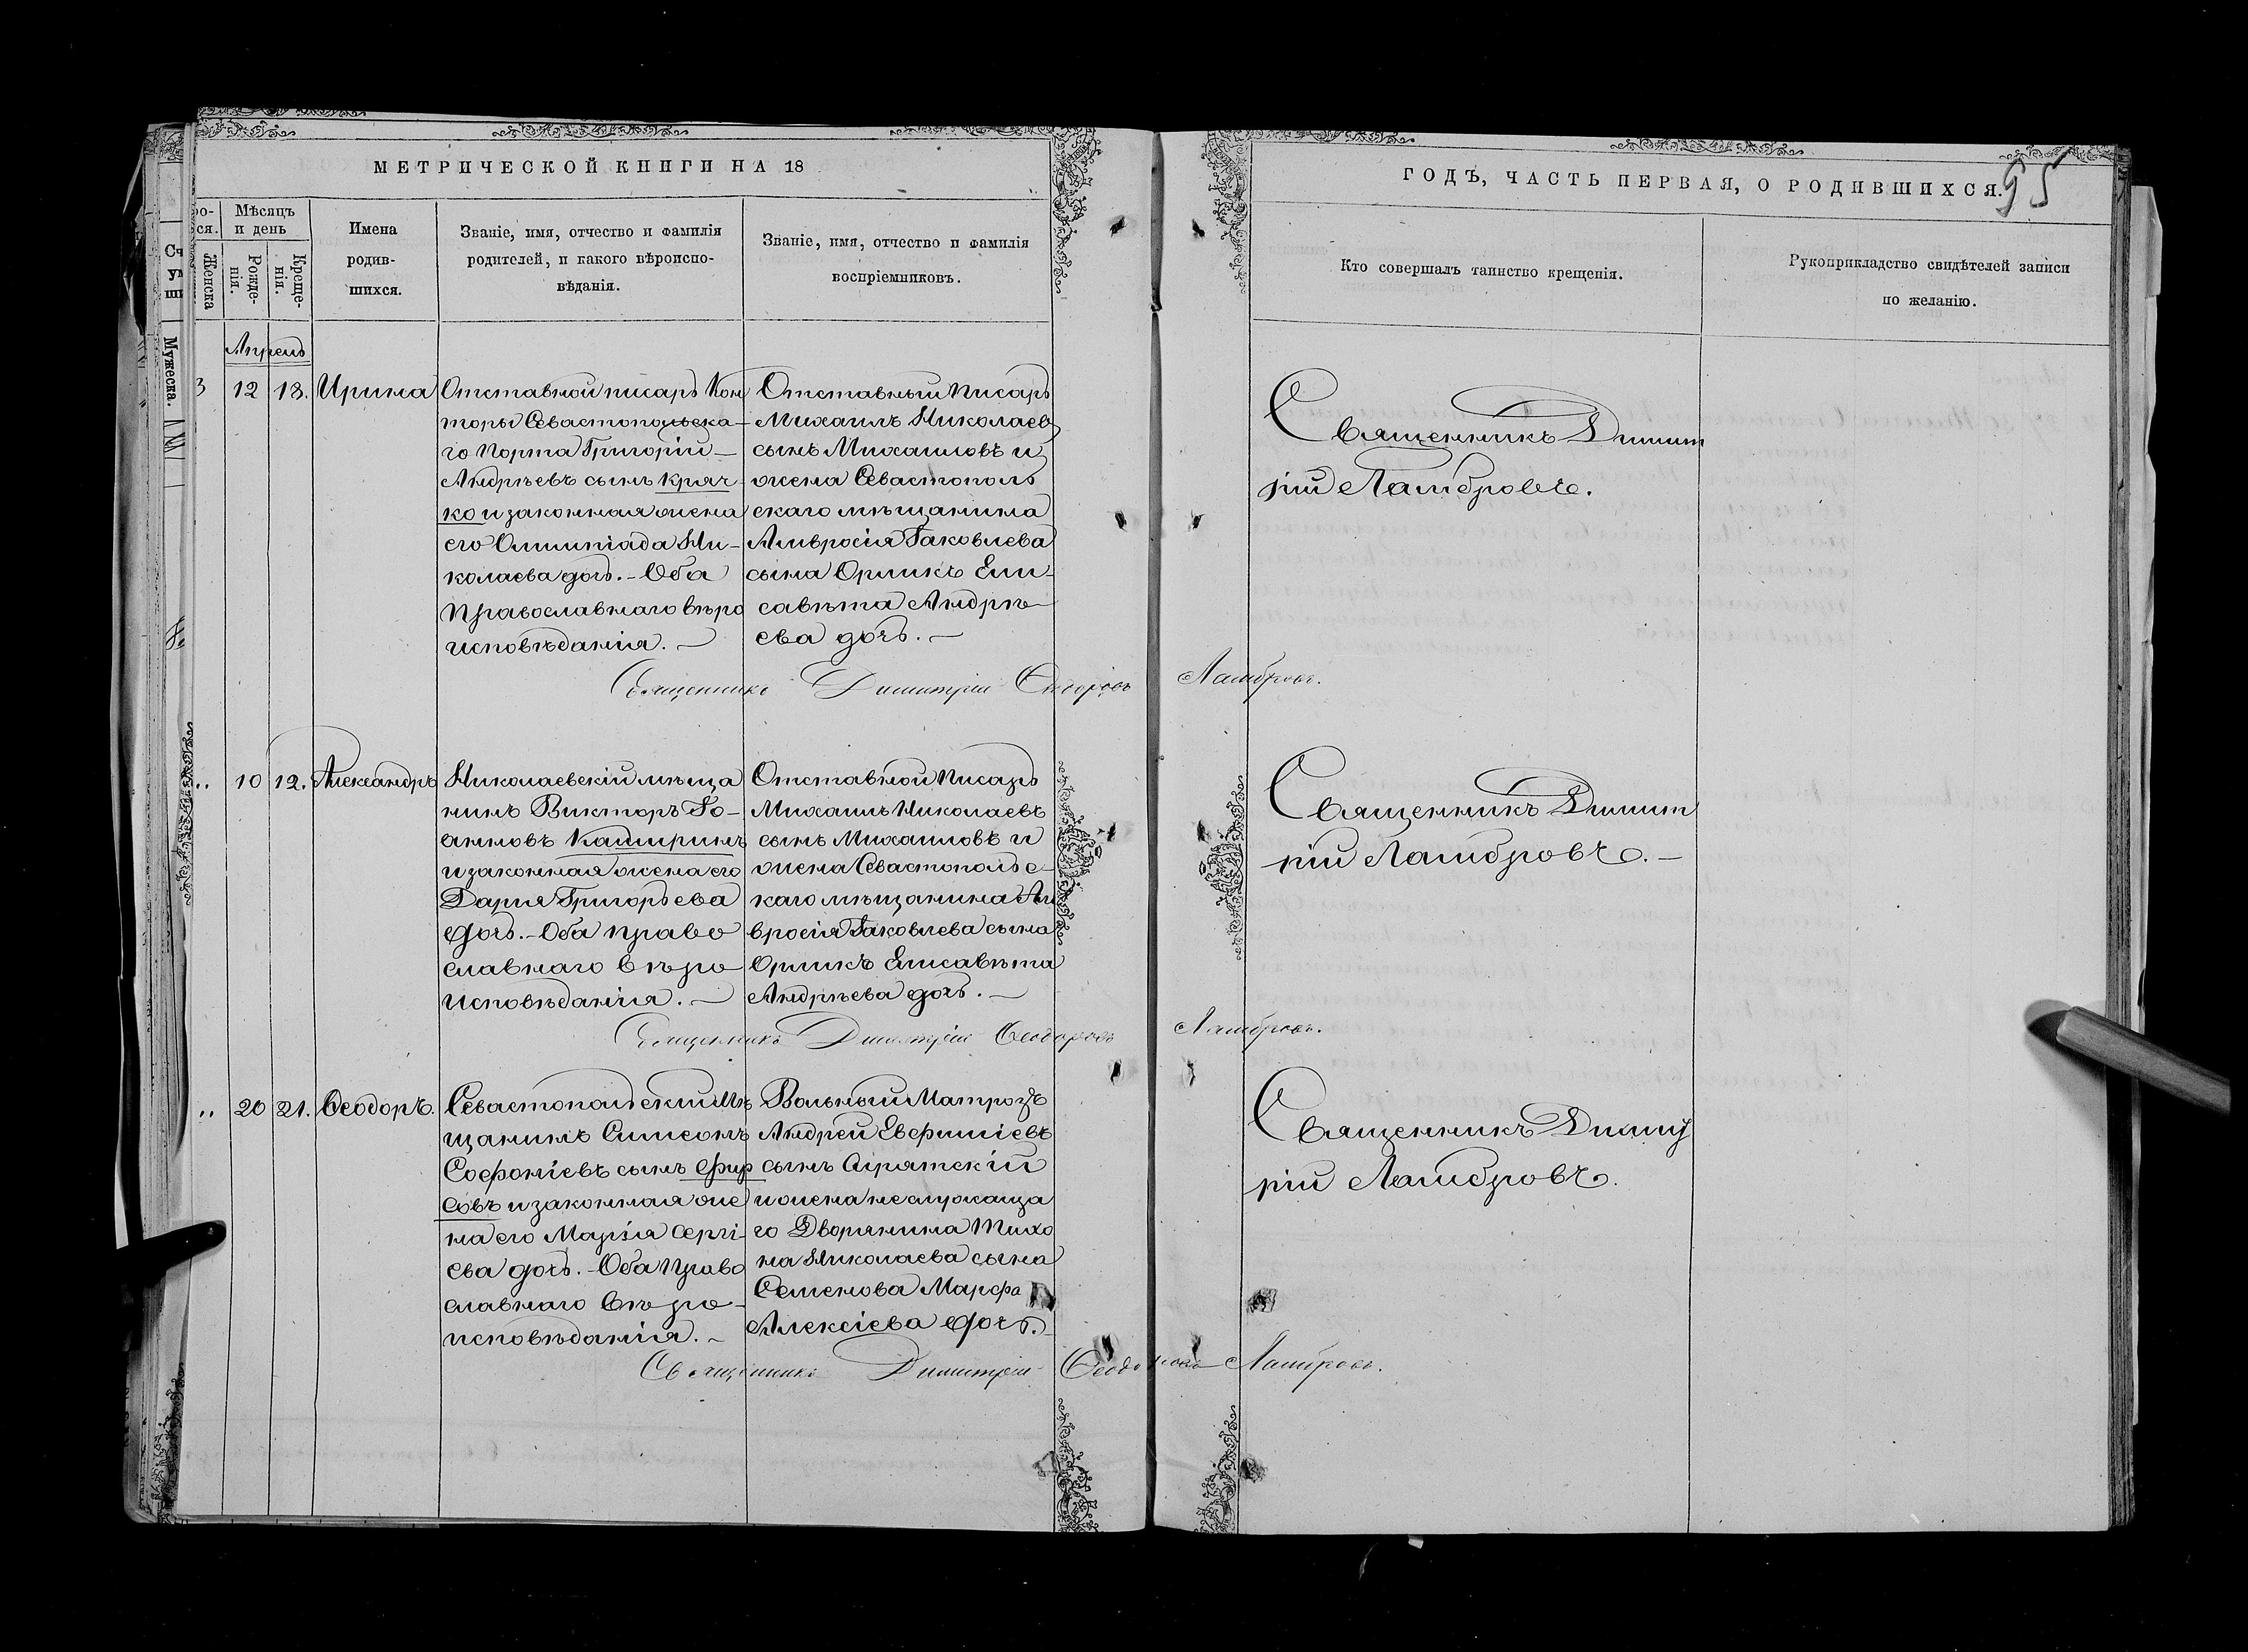 МЕТРИЧЕСКОЙ КНИГИ НА 18
ГОДЪ, ЧАСТЬ ПЕРВАЯ, О РОДИВШИХСЯ.
95
ро-
ся.
Женска
Мѣсяцъ
и день
Рожде-
нія.
Креще-
нія.
Имена
родив-
шихся.
Званіе, имя, отчество и фамилія
родителей, и какого вѣроиспо-
вѣданія.
Званіе, имя, отчество и фамилія
воспріемниковъ.
Кто совершалъ таинство крещенія.
Рукоприкладство свидѣтелей записи
по желанію.
Сч
Мужеска.
Апрель
3 12 18. Ирина
Отставной писарь Кон
торы Севастопольска-
го Порта Григорій
Андрѣевъ сынъ Кряч-
ко и законная жена
его Олимпіада Ни-
колаева дочь. - Оба
Православнаго вѣро
исповѣданія. -
Отставный Писарь
Михаилъ Николаевъ
сынъ Михаиловъ и
жена Севастополь
скаго мѣщанина
Амвросія Іаковлева
сына Орликъ Ели-
савѣта Андрѣ-
ева дочь. -
Священникъ Димит
рій Ламбровъ.
Священникъ Димитрій Ѳеодоровъ Ламбровъ.
,, 10 12. Александръ
Николаевскій мѣща
нинъ Викторъ Іо-
анновъ Каширинъ
и законная жена его
Дарія Григорьева
дочь. - Оба право
славнаго вѣро
исповѣданія. -
Отставной Писарь
Михаилъ Николаевъ
сынъ Михаиловъ и
жена Севастопольс-
каго мѣщанина Ам
вросія Іаковлева сына
Орликъ Елисавѣта
Андрѣева дочь. -
Священникъ Димит
рій Ламбровъ. -
Священникъ Димитрій Ѳеодоровъ Ламбровъ.
,, 20 21. Ѳеодоръ.
Севастопольскій Мѣ
щанинъ Симеонъ
Софоніевъ сынъ Фир
совъ и законная же
на его Марія Сергі-
ева дочь. - Оба Право
славнаго вѣро-
исповѣданія. -
Вольный Матрозъ
Андрей Евфиміевъ
сынъ Сірятскій
и жена неслужаща
го Дворянина Тихо
на Николаева сына
Семенова Марфа
Алексіева дочь.
Священникъ Димит
рій Ламбровъ.
Священникъ Димитрій Ѳеодоровъ Ламбровъ.